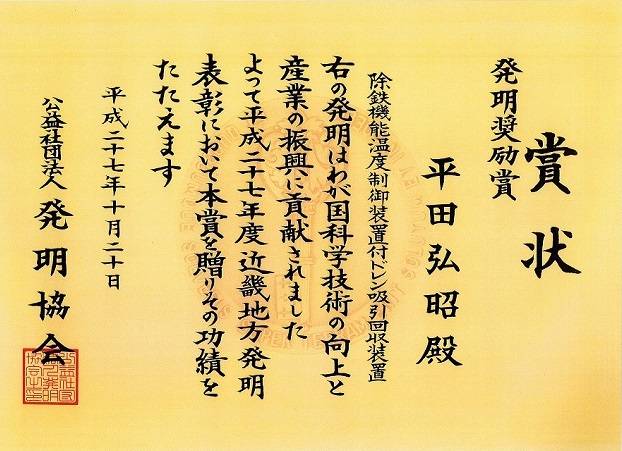 賞状
発明奨励賞
平田弘昭殿
除鉄機能温度制御装置付ドレン吸引回収装置
右の発明はわが国科学技術の向上と
産業の振興に貢献されました
よって平成二十七年度近畿地方発明
表彰において本賞を贈りその功績を
たたえます
平成二十七年十月二十日
公益社団法人 発明協会